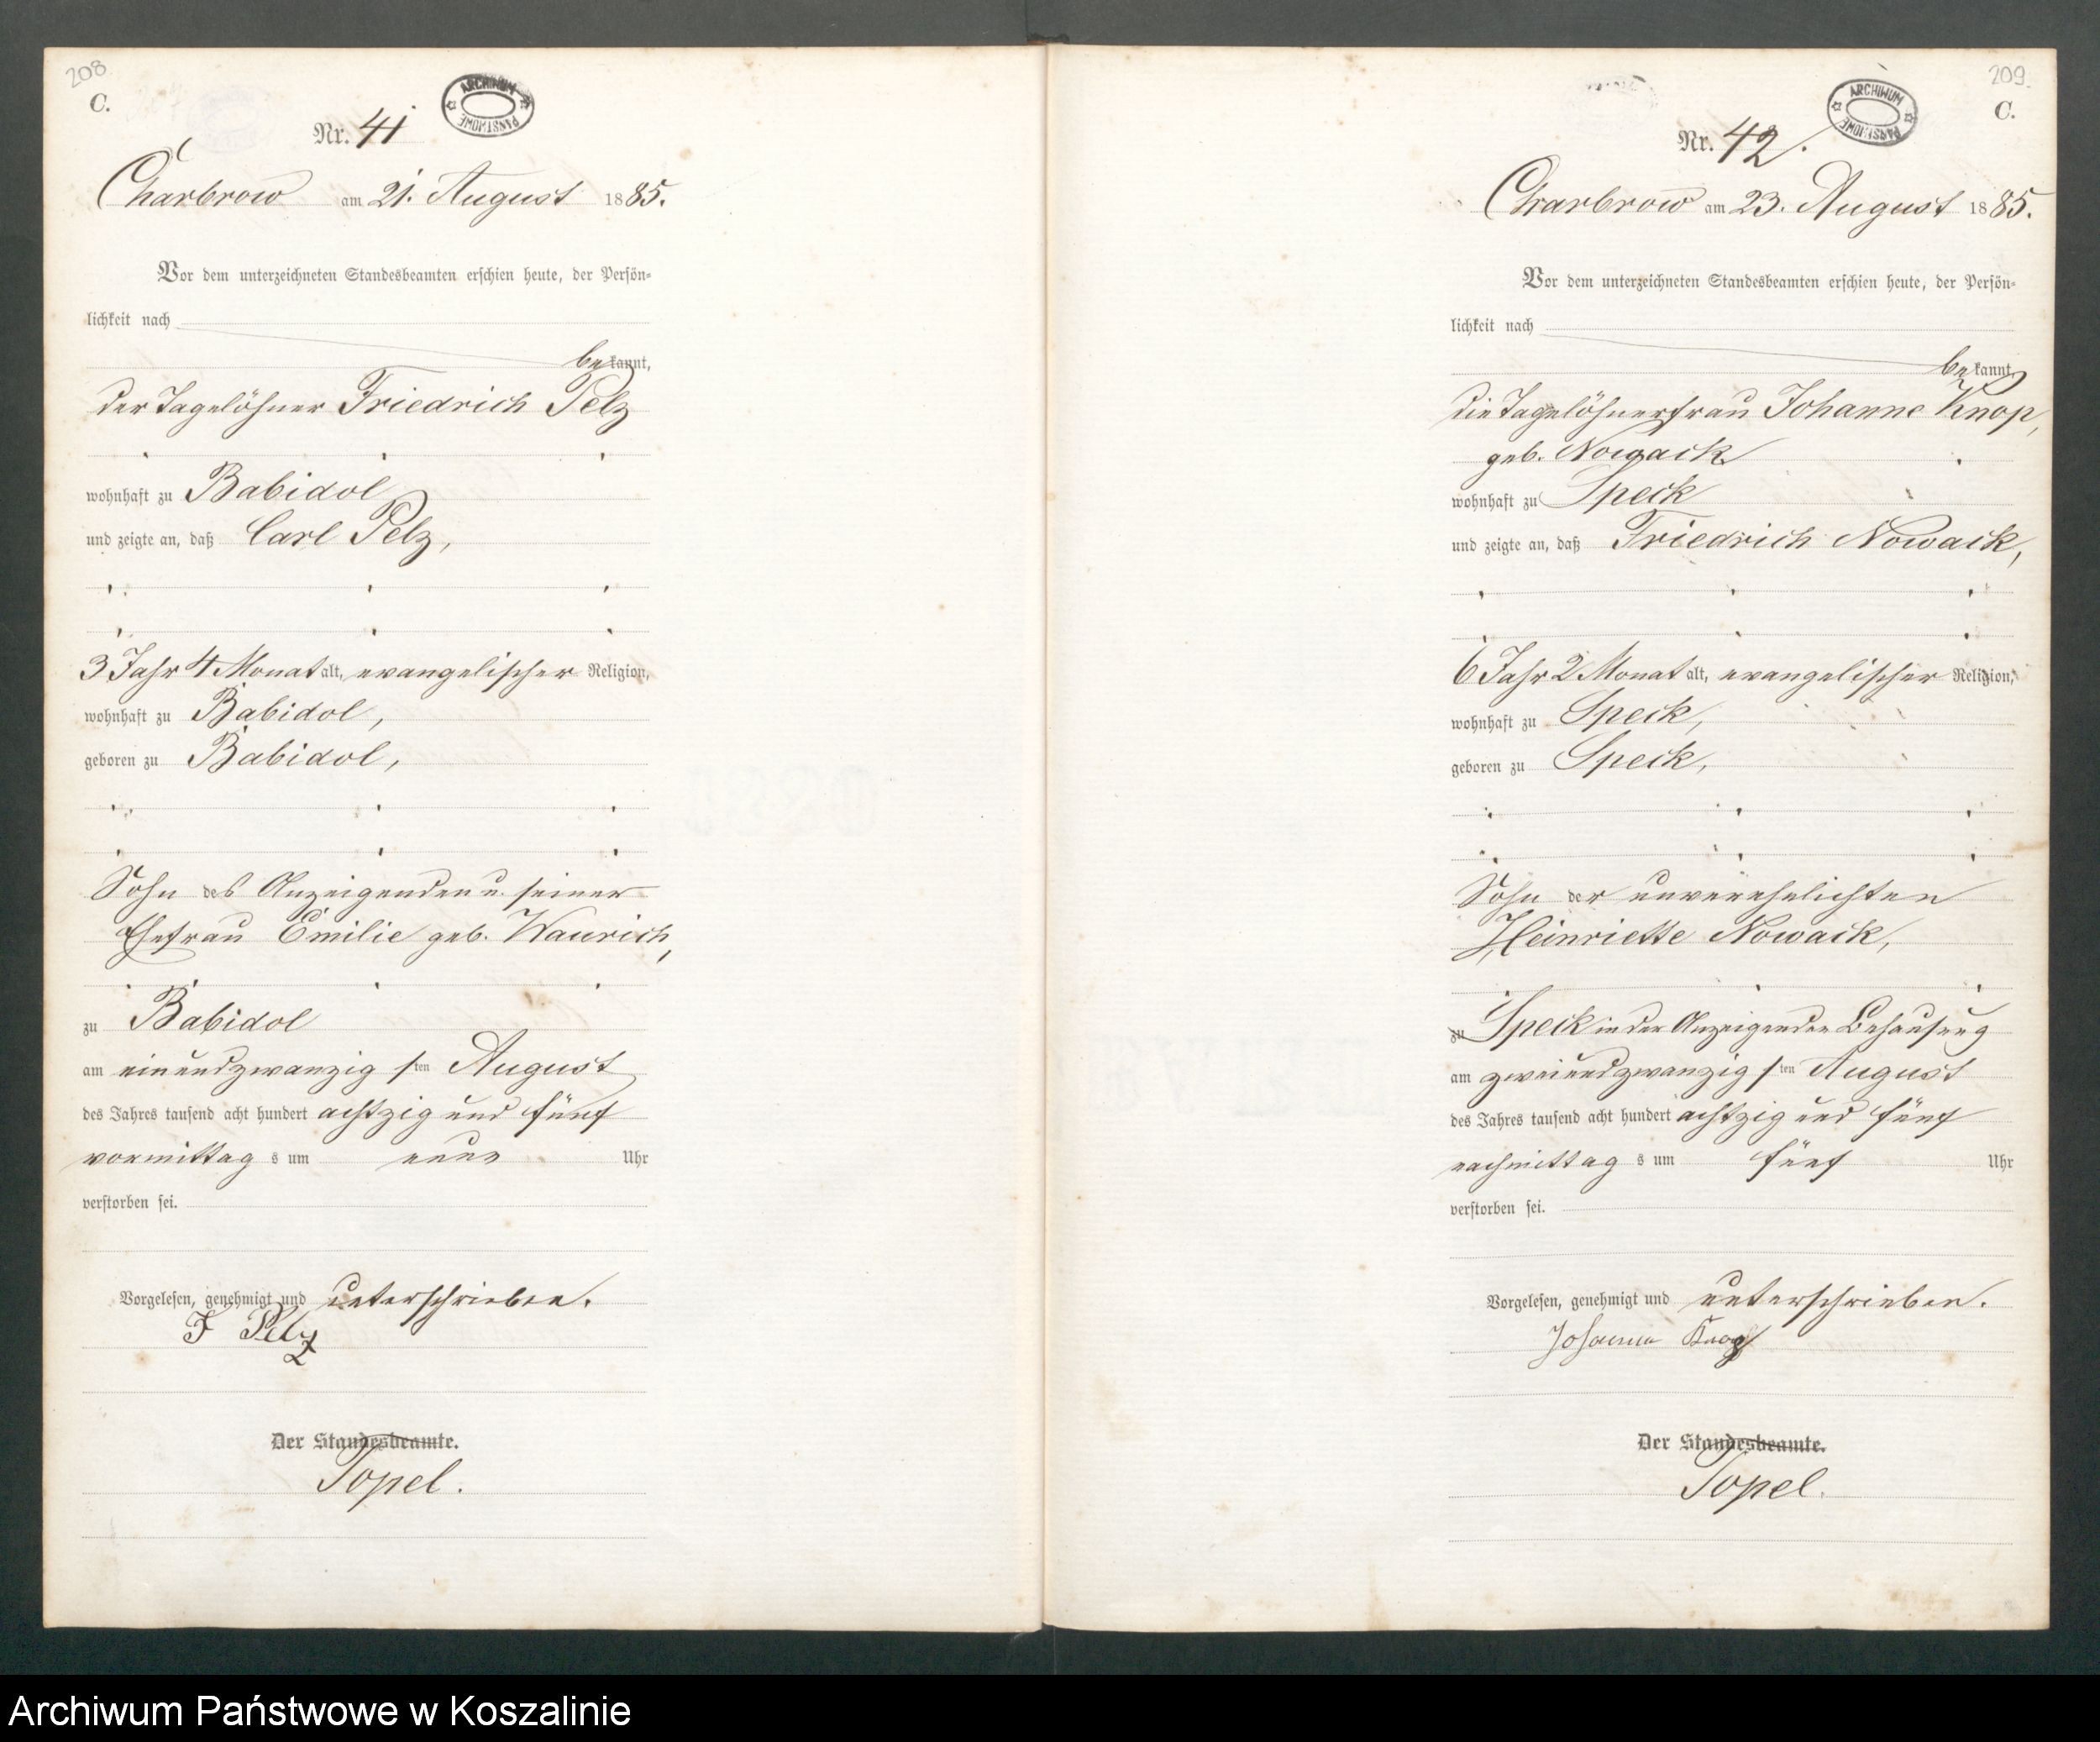 208
C.
ARCHIWUM PAŃSTWOWE
Nr. 41
Charbrow am 21. August 1885.
Vor dem unterzeichneten Standesbeamten erschien heute, der Persön-
lichkeit nach
bekannt,
der Tagelöhner Friedrich Pelz
wohnhaft zu Babidol
und zeigte an, daß Carl Pelz,
3 Jahr 4 Monat alt, evangelischer Religion,
wohnhaft zu Babidol,
geboren zu Babidol,
Sohn des Anzeigenden u. seiner
Ehefrau Emilie geb. Waurich,
zu Babidol
am einundzwanzigsten August
des Jahres tausend acht hundert achtzig und fünf
vormittags um neun Uhr
verstorben sei.
Vorgelesen, genehmigt und unterschrieben.
F Pelz
Der Standesbeamte.
Topel.
209.
C.
ARCHIWUM PAŃSTWOWE
Nr. 42.
Charbrow am 23. August 1885.
Vor dem unterzeichneten Standesbeamten erschien heute, der Persön-
lichkeit nach
bekannt,
die Tagelöhnerfrau Johanne Knop,
geb. Nowack
wohnhaft zu Speck
und zeigte an, daß Friedrich Nowack,
6 Jahr 2 Monat alt, evangelischer Religion,
wohnhaft zu Speck,
geboren zu Speck,
Sohn der unverehelichten
Heinriette Nowack,
zu Speck in der Anzeigenden Behausung
am zweiundzwanzigsten August
des Jahres tausend acht hundert achtzig und fünf
nachmittags um fünf Uhr
verstorben sei.
Vorgelesen, genehmigt und unterschrieben.
Johanna Knop
Der Standesbeamte.
Topel.
Archiwum Państwowe w Koszalinie